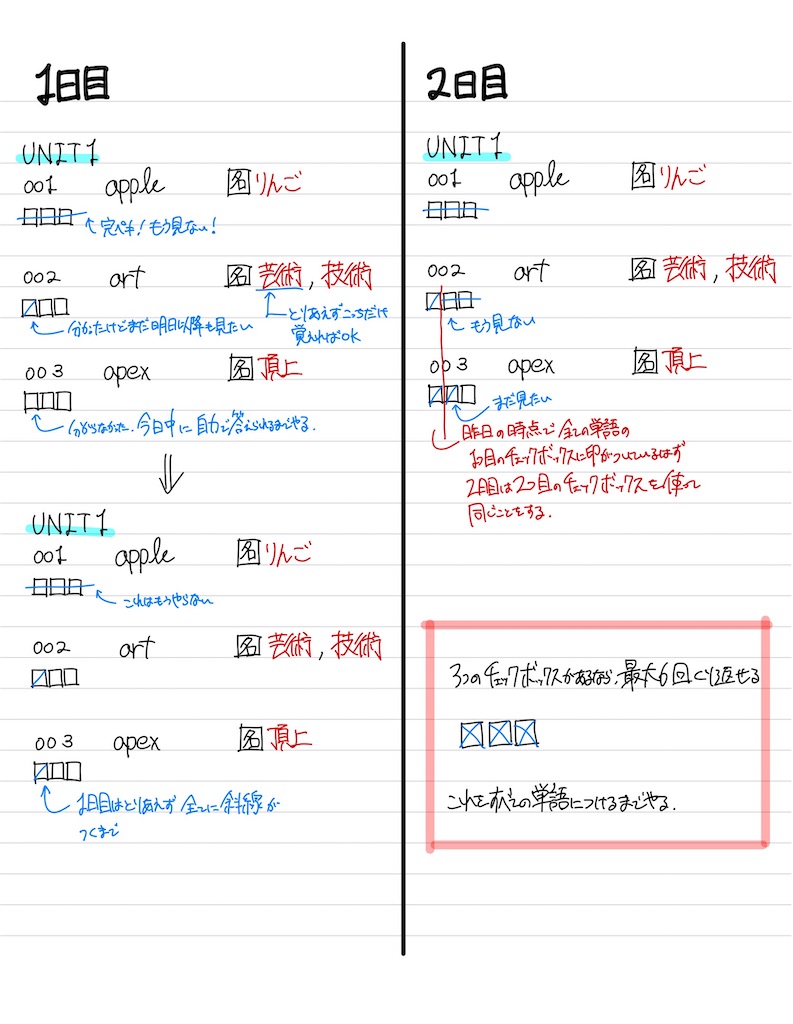 1日目
UNIT1
001 apple 名 りんご
完ペキ!もう見ない!
002 art 名 芸術, 技術
分かったけどまだ明日以降も見たい
とりあえずこっちだけ
覚えればOK
003 apex 名 頂上
分からなかった. 今日中に自力で答えられるまでやる.
UNIT1
001 apple 名 りんご
これはもうやらない
002 art 名 芸術, 技術
003 apex 名 頂上
1日目はとりあえず全てに斜線が
つくまで
2日目
UNIT1
001 apple 名 りんご
002 art 名 芸術, 技術
もう見ない
003 apex 名 頂上
まだ見たい
昨日の時点で全ての単語の
1つ目のチェックボックスに印がついているはず
2日目は2つ目のチェックボックスを使って
同じことをする.
3つのチェックボックスがあるなら, 最大6回くり返せる
これをすべての単語につけるまでやる.